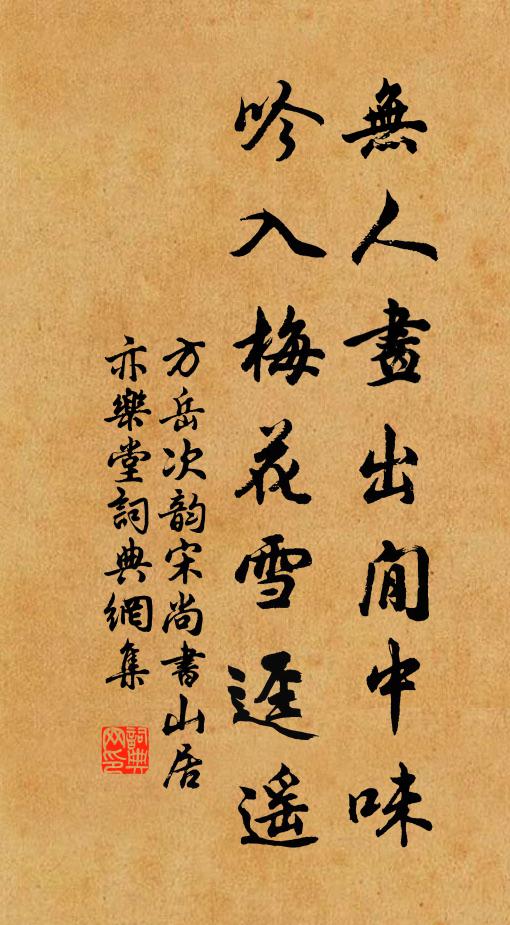 無人畫出閒中味
吟入梅花雪逕遥
方岳次韵宋尚書山居
亦樂堂詞典網集
詞典
网印